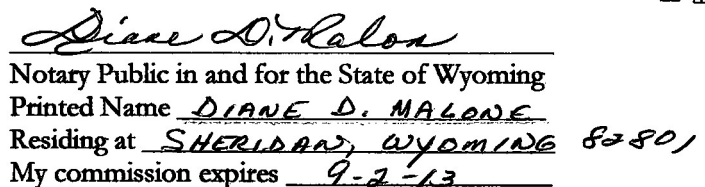 Diane D. Malon
Notary Public in and for the State of Wyoming
Printed Name DIANE D. MALONE
Residing at SHERIDAN, WYOMING 82801
My commission expires 9-2-13